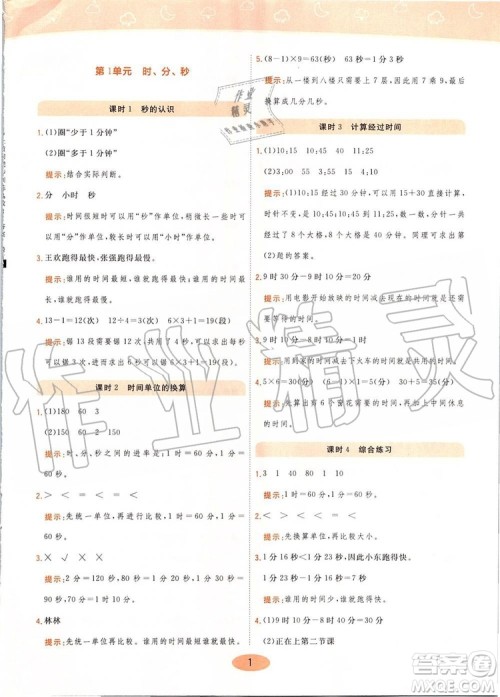 第1单元 时、分、秒
课时1 秒的认识
1. (1)圈“少于1分钟”
(2)圈“多于1分钟”
提示:结合实际判断。
2. 分 小时 秒
提示:时间很短时可以用“秒”作单位,时间较短时可
以用“分”作单位,时间较长时可以用“小时”作单位。
3. 王欢跑得最快,张强跑得最慢。
提示:谁用的时间最短,谁跑得最快;谁用的时间最
长,谁跑得最慢。
4. 13-1=12(次) 12÷4=3(秒) 6×3=18(秒)
提示:锯13段需要锯12次,锯12次用了12分4秒,
可以求出锯3次用
课时2 时间单位的换算
1. (1)180 60 3
(2)150 60 2 150
提示:时、分、秒之间的进率是:1时=60分,1分=
60秒。
2. > < = < = <
提示:先统一单位,再进行比较,1时=60分,1分=
60秒。
3. × √ × ×
提示:2分=120秒,90秒>80秒,100秒<120秒,
5分=300秒。
4. 林林
提示:先统一单位,1分=60秒,再进行比较,谁用的
时间少谁就做得快。
5. (8-1)×9=63(秒) 63秒=1分3秒
提示:从一楼到八楼只需要上7层,7个9相加,再
换算成几分几秒。
课时3 计算经过时间
1. (1)10:15 10:45 30
(2)3:00 3:25 25
提示:(1)根据经过30分,可以用15+30直接计算,
时针不变,是10:45;也可以借助钟面来理解,分针
经过了6个大格,6个大格是30分钟。同理可求出
(2)题的答案。
2. 9时30分-9时=30分
提示:用电影开始放映的时间减去现在的时间。
3. 9时10分-9时=10分
提示:用列车到来的时间减去下大车的时间就可以求
出。
4. 5×5+5=30(分) 6×5=30(分)
提示:先算出6个窗花需要几分钟,再加上中间休
息的时间。
课时4 综合练习
1. 3 1 40 80 10
提示:1时=60分,1分=60秒。
2. > < < = >
提示:先统一单位,再进行比较,1时=60分,1分=
60秒。
3. 1分16秒<1分23秒,因此小东跑得快。
1分23秒-1分16秒=7秒
提示:时间少的跑得快。
4. (1)9时10分-8时30分=40分
(2)正在上第二节课
1
作业精灵